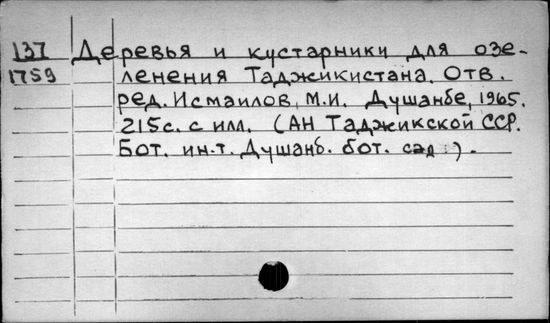 137 Деревья и кустарники для озе-
1759 ленения Таджикистана. Отв.
ред. Исмаилов, М.И. Душанбе, 1965.
215с. с илл. (АН Таджикской ССР.
Бот. ин-т. Душанб. бот. сад).